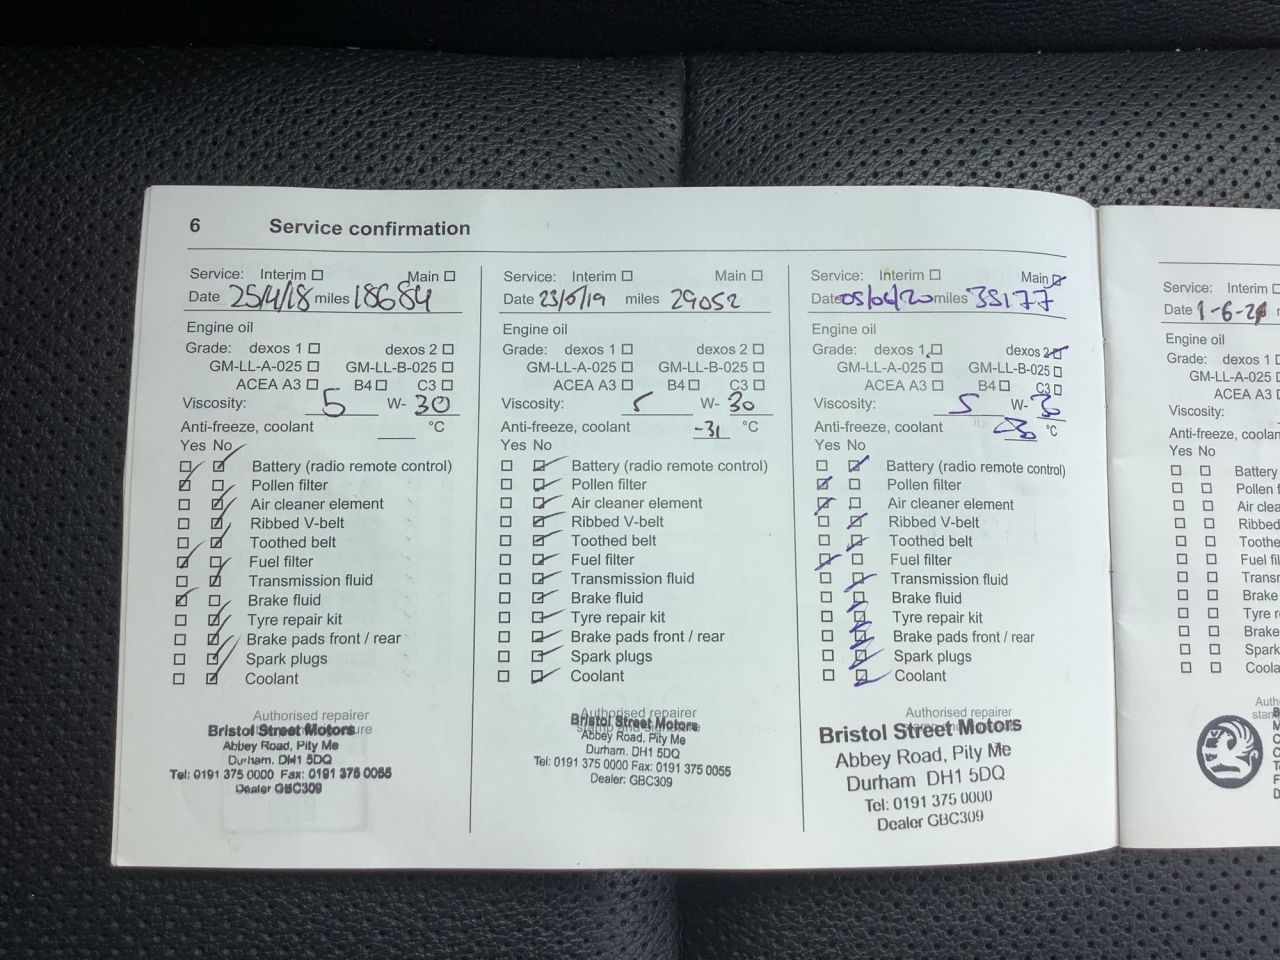 6 Service confirmation
Service: Interim Main
Date 25/4/18 miles 18684
Engine oil
Grade: dexos 1 dexos 2
GM-LL-A-025 GM-LL-B-025
ACEA A3 B4 C3
Viscosity: 5 W- 30
Anti-freeze, coolant °C
Yes No
Battery (radio remote control)
Pollen filter
Air cleaner element
Ribbed V-belt
Toothed belt
Fuel filter
Transmission fluid
Brake fluid
Tyre repair kit
Brake pads front / rear
Spark plugs
Coolant
Authorised repairer
Bristol Street Motors
Abbey Road, Pity Me
Durham, DH1 5DQ
Tel: 0191 375 0000 Fax: 0191 375 0055
Dealer GBC309
Service: Interim Main
Date miles 29052
Engine oil
Grade: dexos 1 dexos 2
GM-LL-A-025 GM-LL-B-025
ACEA A3 B4 C3
Viscosity: 5 W- 30
Anti-freeze, coolant -31 °C
Yes No
Battery (radio remote control)
Pollen filter
Air cleaner element
Ribbed V-belt
Toothed belt
Fuel filter
Transmission fluid
Brake fluid
Tyre repair kit
Brake pads front / rear
Spark plugs
Coolant
Authorised repairer
stamp and signature
Bristol Street Motors
Abbey Road, Pity Me
Durham, DH1 5DQ
Tel: 0191 375 0000 Fax: 0191 375 0055
Dealer: GBC309
Service: Interim Main
Date miles
Engine oil
Grade: dexos 1 dexos 2
GM-LL-A-025 GM-LL-B-025
ACEA A3 B4 C3
Viscosity: 5 W- 30
Anti-freeze, coolant °C
Yes No
Battery (radio remote control)
Pollen filter
Air cleaner element
Ribbed V-belt
Toothed belt
Fuel filter
Transmission fluid
Brake fluid
Tyre repair kit
Brake pads front / rear
Spark plugs
Coolant
Authorised repairer
Bristol Street Motors
Abbey Road, Pity Me
Durham DH1 5DQ
Tel: 0191 375 0000
Dealer GBC309
Service: Interim
Date 1-6-21
Engine oil
Grade: dexos 1
GM-LL-A-025
ACEA A3
Viscosity:
Anti-freeze, coolan
Yes No
Battery
Pollen f
Air clea
Ribbed
Toothe
Fuel fil
Trans
Brake
Tyre r
Brake
Spark
Coola